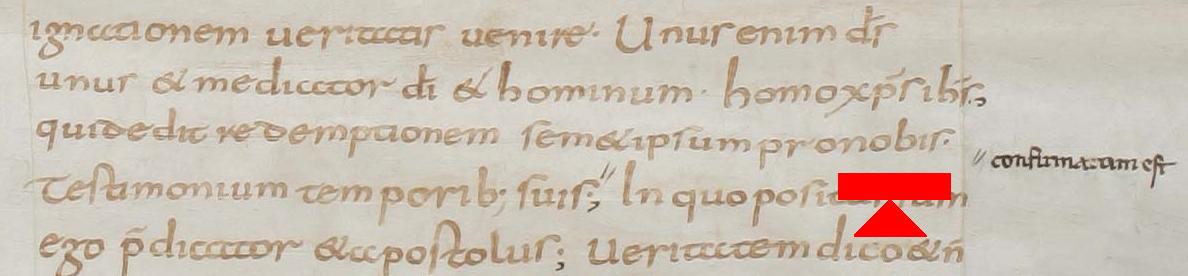 ignitionem ueritatis uenire. Unus enim d̅s
unus & mediator d̅i & hominum. homo xp̅s ih̅s;
qui dedit redemptionem sem&ipsum pro nobis.
Testimonium temporib; suis;〃 In quo
〃 confirmatum est
ego p̅dicator & apostolus; ueritatem dico & n̅